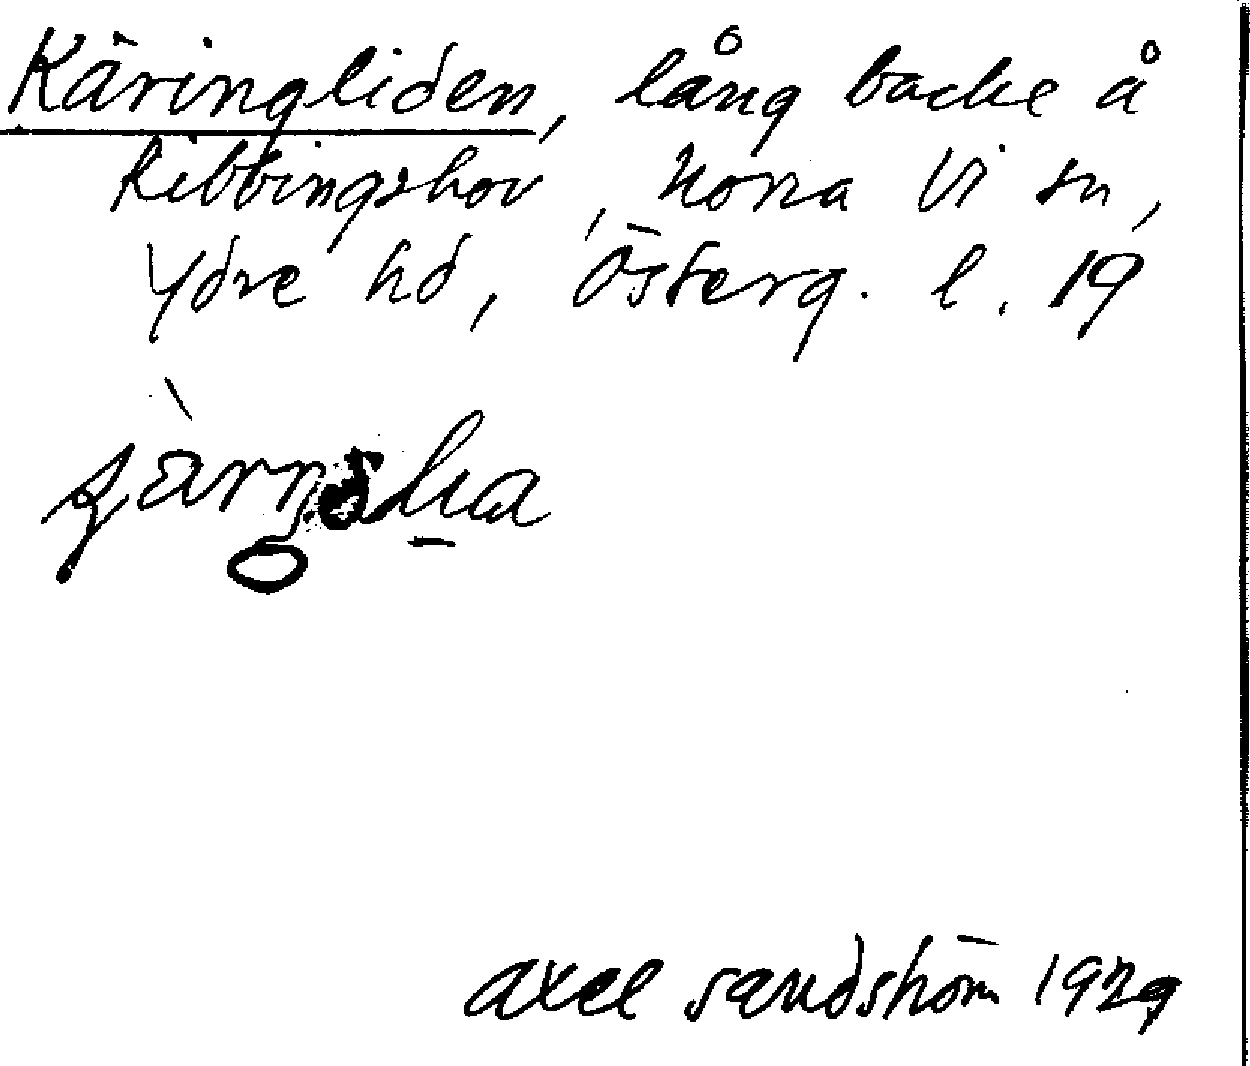 Käringliden, lång backe å
Ribbingshov, Norra Vi sn,
Ydre hd, Österg. l. 19
Axel Sandström 1929